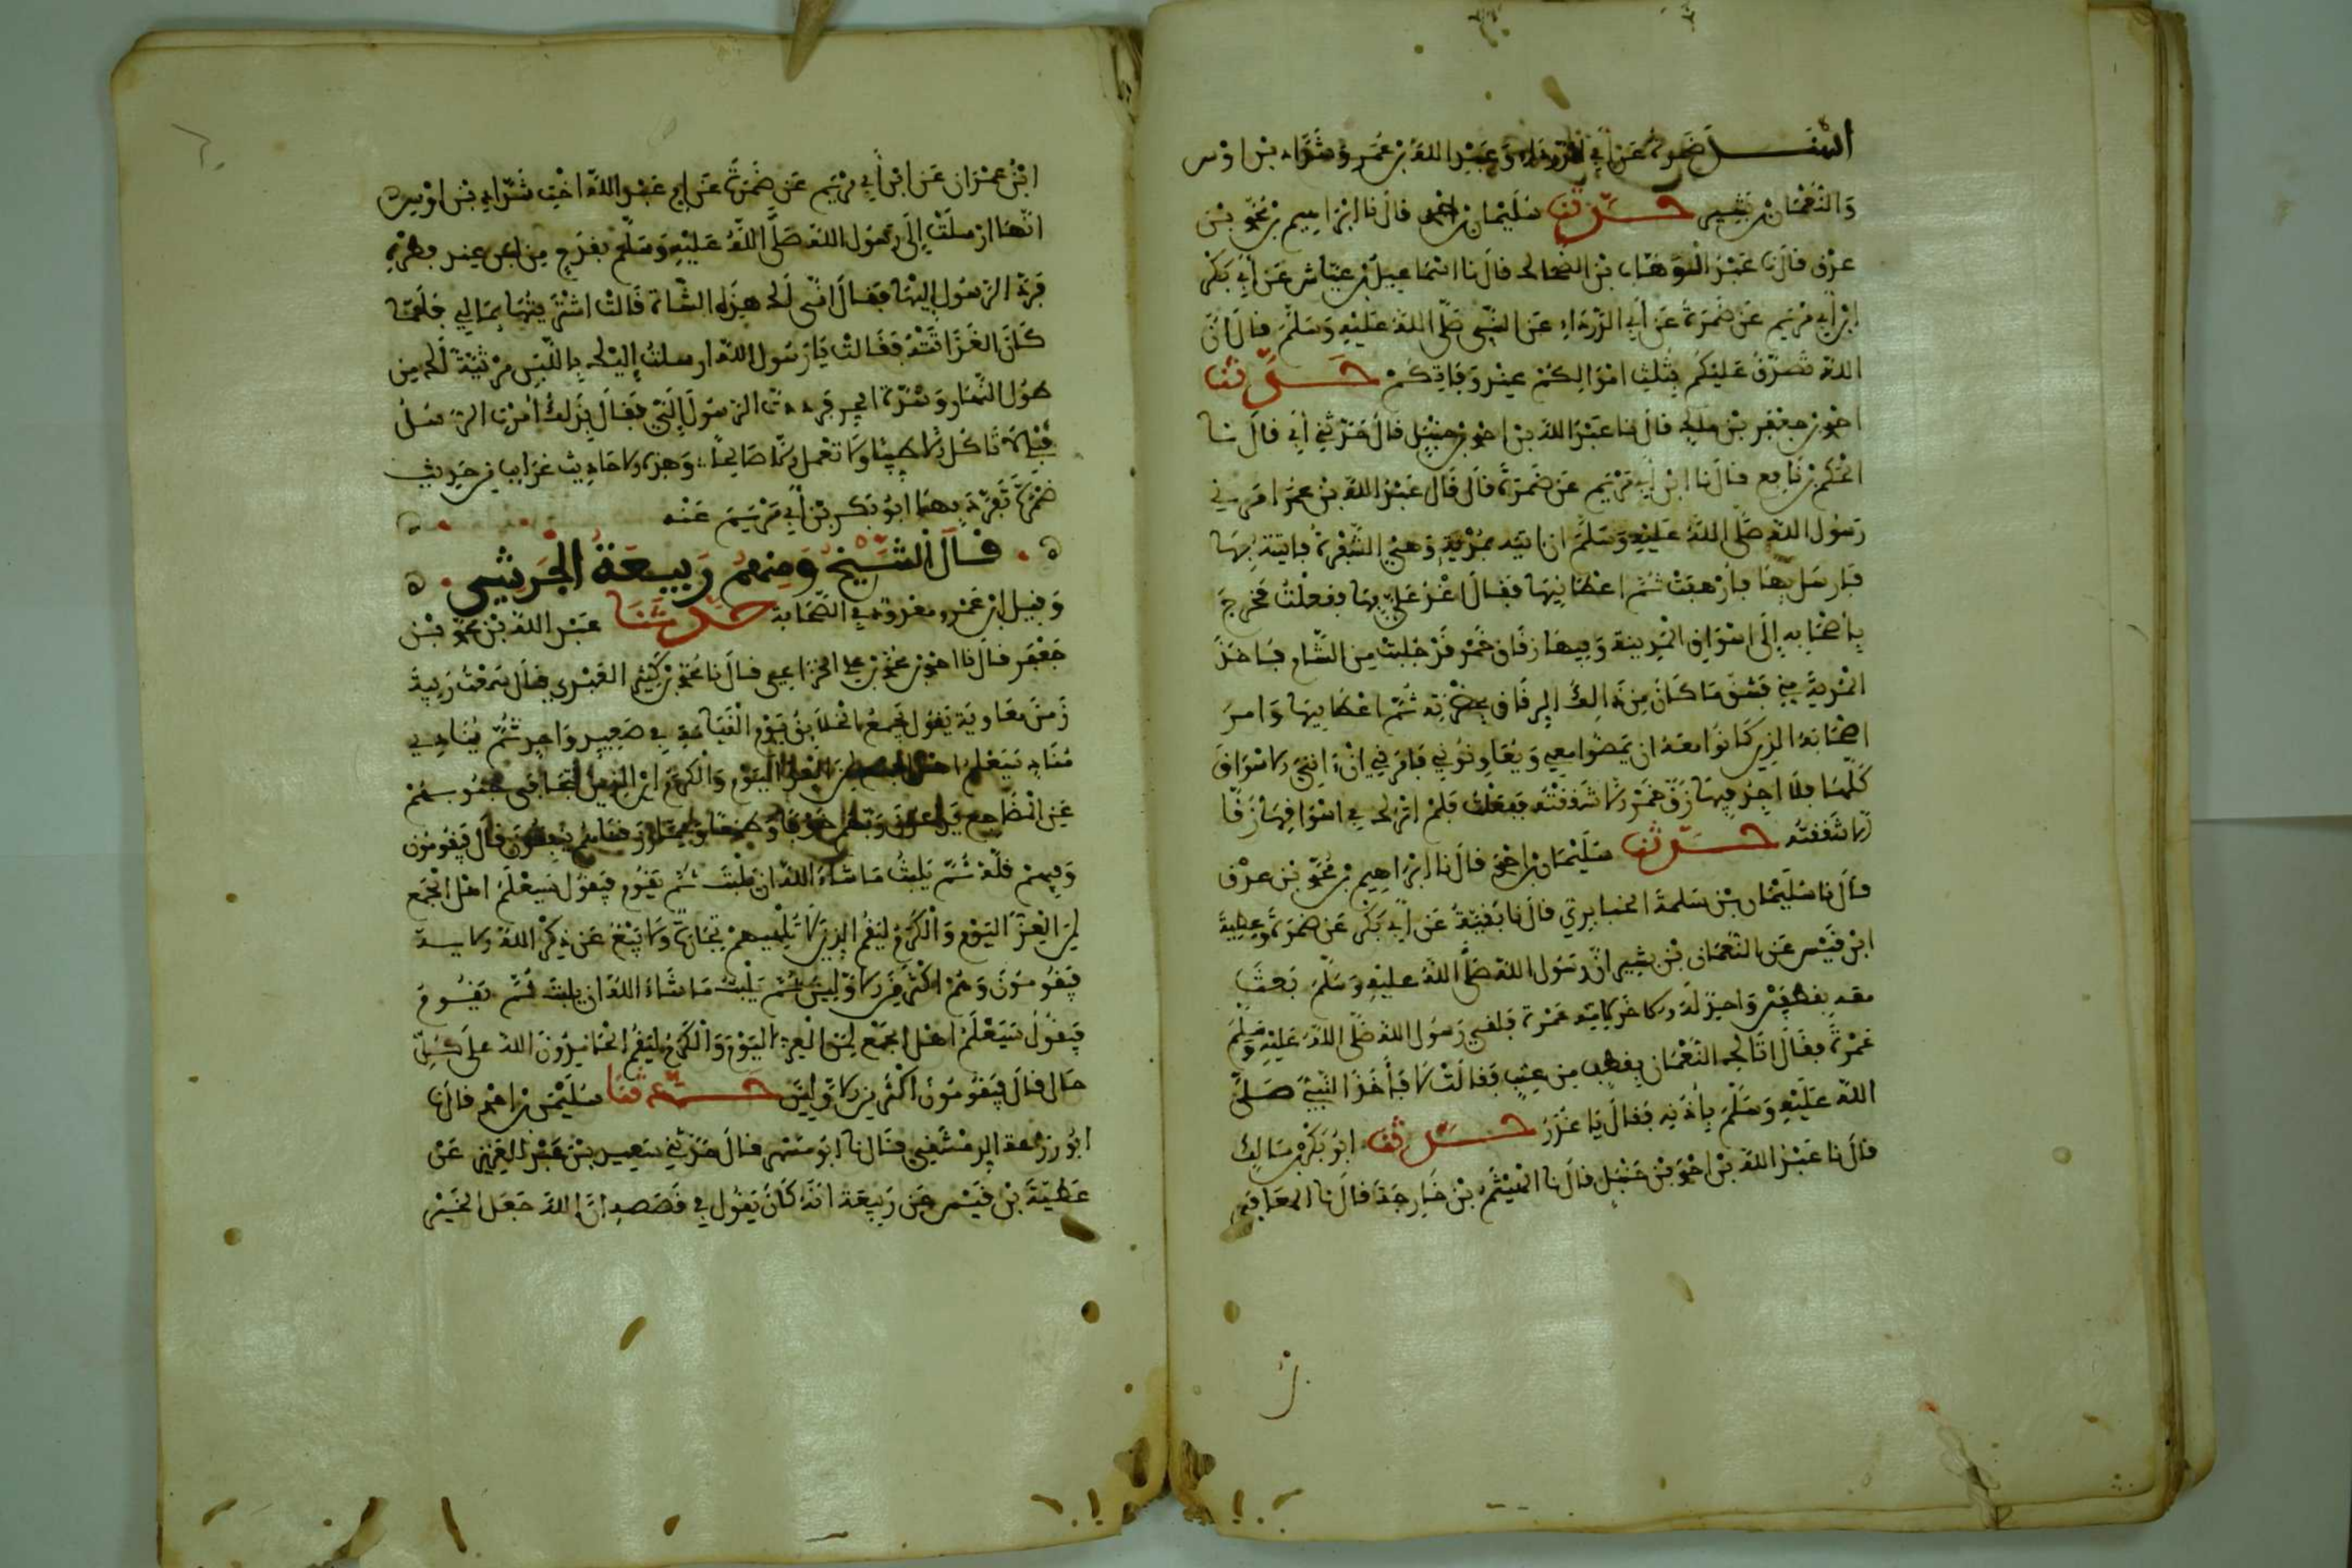 اسند ضمرة عن أبي الدرداء وعبد الله بن عمر وشداد بن اوس
والنعمان بن بشير حدثنا سليمان بن احمد قال نا ابراهيم بن محمد بن
عرق قال نا عبد الوهاب بن الضحاك قال نا اسماعيل بن عياش عن أبي بكر
ابن أبي مريم عن ضمرة عن أبي الدرداء عن النبي صلى الله عليه وسلم قال ان
الله تصدق عليكم بثلث اموالكم عند وفاتكم حدثنا
احمد بن جعفر بن ملك قال نا عبد الله بن احمد بن حنبل قال حدثني أبي قال نا
الحكم بن نافع قال نا ابن أبي مريم عن ضمرة قال قال عبد الله بن عمر امرني
رسول الله صلى الله عليه وسلم ان اتيه بمدية وهي الشفرة فاتيته بها
فارسل بها فأرهفت ثم اعطانيها فقال اغد علي بها ففعلت فخرج
بأصحابه إلى اسواق المدينة وفيها زقاق خمر قد جلبت من الشام فاخذ
المدية مني فشق ما كان من ذالك الزقاق بحضرته ثم اعطانيها وامر
اصحابه الذين كانوا معه ان يمضوا معي ويعاونوني فامرني ان اتي الاسواق
كلها فلا اجد فيها زق خمر الا شققته ففعلت فلم اترك في اسواقها زقا
الا شققته حدثنا سليمان بن احمد قال نا ابراهيم بن محمد بن عرق
قال نا سليمان بن سلمة الخبايري قال نا بقية عن أبي بكر عن ضمرة وعطية
ابن قيس عن النعمان بن بشير ان رسول الله صلى الله عليه وسلم بعث
معه بقطفين واحد له والاخر لامه عمرة فلقي رسول الله صلى الله عليه وسلم
عمرة فقال اتاك النعمان بقطف من عنب فقالت لا فأخذ النبي صلى
الله عليه وسلم بأذنه فقال يا غدر حدثنا ابو بكر بن مالك
قال نا عبد الله بن احمد بن حنبل قال نا الهيثم بن خارجة قال نا المعافى
ابن عمران عن ابن أبي مريم عن ضمرة عن ام عبد الله اخت شداد بن اوس
انها ارسلت إلى رسول الله صلى الله عليه وسلم بقدح من لبن عند فطره
فرد الرسول اليها فقال انى لك هذه الشاة قالت اشتريتها بمالي فلما
كان الغد اتته فقالت يا رسول الله ارسلت إليك باللبن مرثية لك من
طول النهار وشدة الحر فرددت الرسول إلي فقال بذلك أمرت الرسل
قبلي لا تاكل الا طيبا ولا تعمل الا صالحا وهذه الاحاديث غرايب من حديث
ضمرة تفرد بها ابو بكر بن أبي مريم عنه
قال الشيخ ومنهم ربيعة الجرشي
وقيل ابن عمرو معروف في الصحابة حدثنا عبد الله بن محمد بن
جعفر قال نا احمد بن محمد بن علي الخزاعي قال نا محمد بن كثير العبدي قال سمعت ربيعة
زمن معاوية يقول يجمع الخلايق يوم القيامة في صعيد واحد ثم ينادي
مناد سيعلم اهل الجمع لمن العز اليوم والكرم اين الذين تتجافى جنوبهم
عن المضاجع يدعون ربهم خوفا وطمعا ومما رزقناهم ينفقون قال فيقومون
وفيهم قلة ثم يلبث ما شاء الله ان يلبث ثم يقوم فيقول سيعلم اهل الجمع
لمن العز اليوم والكرم ليقم الذين لا تلهيهم تجارة ولا بيع عن ذكر الله الاية
فيقومون وهم اكثر من الاولين ثم يلبث ما شاء الله ان يلبث ثم يقوم
فيقول سيعلم اهل الجمع لمن العز اليوم والكرم ليقم الحمادون الله على كل
حال قال فيقومون اكثر من الاولين حدثنا سليمن بن احمد قال نا
ابو زرعة الدمشقي قال نا ابو مسهر قال حدثني سعيد بن عبد العزيز عن
عطية بن قيس عن ربيعة انه كان يقول في قصصه ان الله جعل الخير